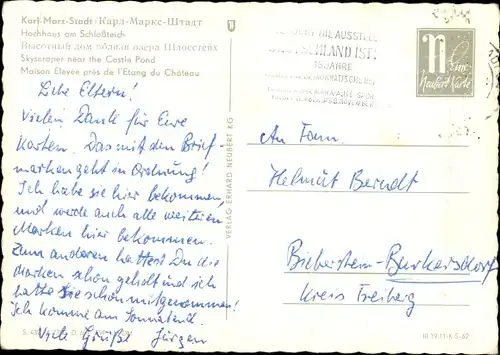 Karl-Marx-Stadt / Карл-Маркс-Штадт
Hochhaus am Schloßteich
Высотный дом вблизи озера Шлосстейх
Skyscraper near the Castle Pond
Maison Elevée près de l'Étang du Château
BESUCHT DIE AUSSTELL
DEUTSCHLAND IST!
15 JAHRE
DEMOKRATISCHE
M
Eine
Neubert Karte
Liebe Eltern!
Vielen Dank für Eure
Karten. Das mit den Brief-
marken geht in Ordnung!
Ich habe sie hier bekommen,
und werde auch alle weiteren
Marken hier bekommen.
Zum anderen hattest Du die
Marken schon geholt und ich
hatte sie schon mitgenommen!
Ich komme am Sonnabend
Viele Grüße Jürgen
VERLAG ERHARD NEUBERT KG
An Fam.
Helmut Berndt
Bieberstein-Burkersdorf
Kreis Freiberg
III 19 11 A 5-62